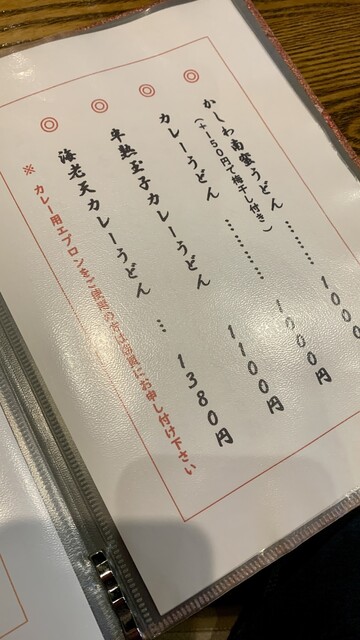 ◎ かしわ南蛮うどん ……… 1000
(+150円で梅干し付き)
◎ カレーうどん ………… 1000円
◎ 半熟玉子カレーうどん 1100円
◎ 海老天カレーうどん … 1380円
※ カレー用エプロンをご使用の方はお気軽にお申し付け下さい